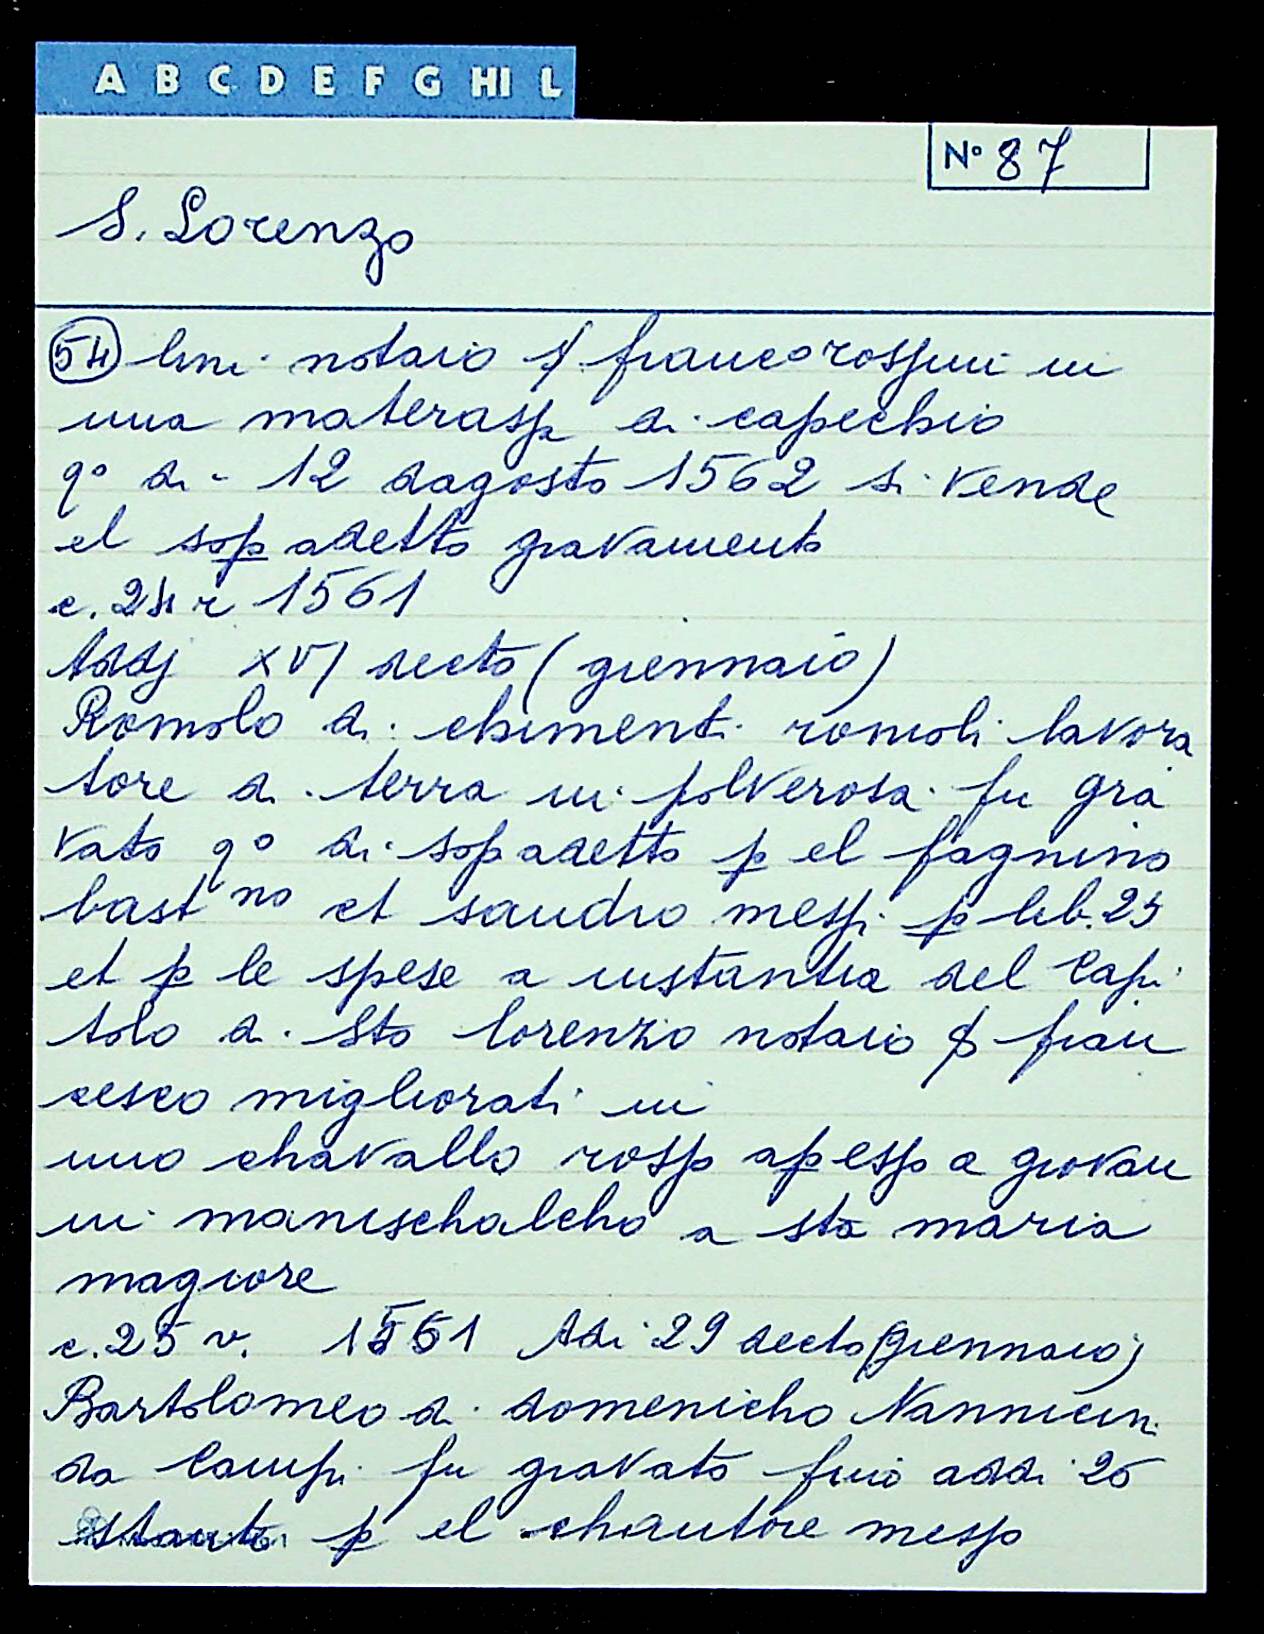 A B C D E F G HI L
N° 87
S. Lorenzo
54 lini notaio franc.o rossini in
una materassa di capechio
q° di - 12 dagosto 1562 si vende
el sop adetto gravamento
c. 24 r 1561
Addj XVI decto (giennaio)
Romolo di chimenti romoli lavora
tore di terra in polverosa fu gra
vato q° di sop adetto p el fagnino
bast no et sandro messi p lib. 25
et p le spese a instantia del Capi
tolo di Sto lorenzio notaio fran
cesco migliorati in
uno chavallo rosso apesso a giovan
ni manischalcho a sta maria
magiore
c. 25 v. 1561 Adi 29 decto (giennaio)
Bartolomeo di domenicho Nannicini
da Campi fu gravato fino addi 26
stante p el chantore messo